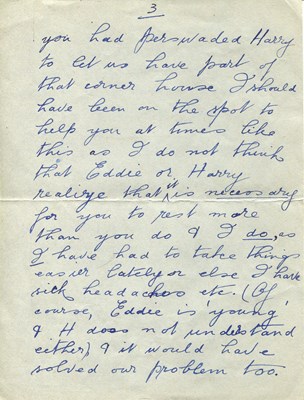 3
you had persuaded Harry
to let us have part of
that corner house I should
have been on the spot to
help you at times like
this as I do not think
that Eddie or Harry
realize that it is necessary
for you to rest more
than you do & I do, as
I have had to take things
easier lately or else I have
sick headaches etc. (Of
course, Eddie is 'young'
& H does not understand
either), & it would have
solved our problem too.